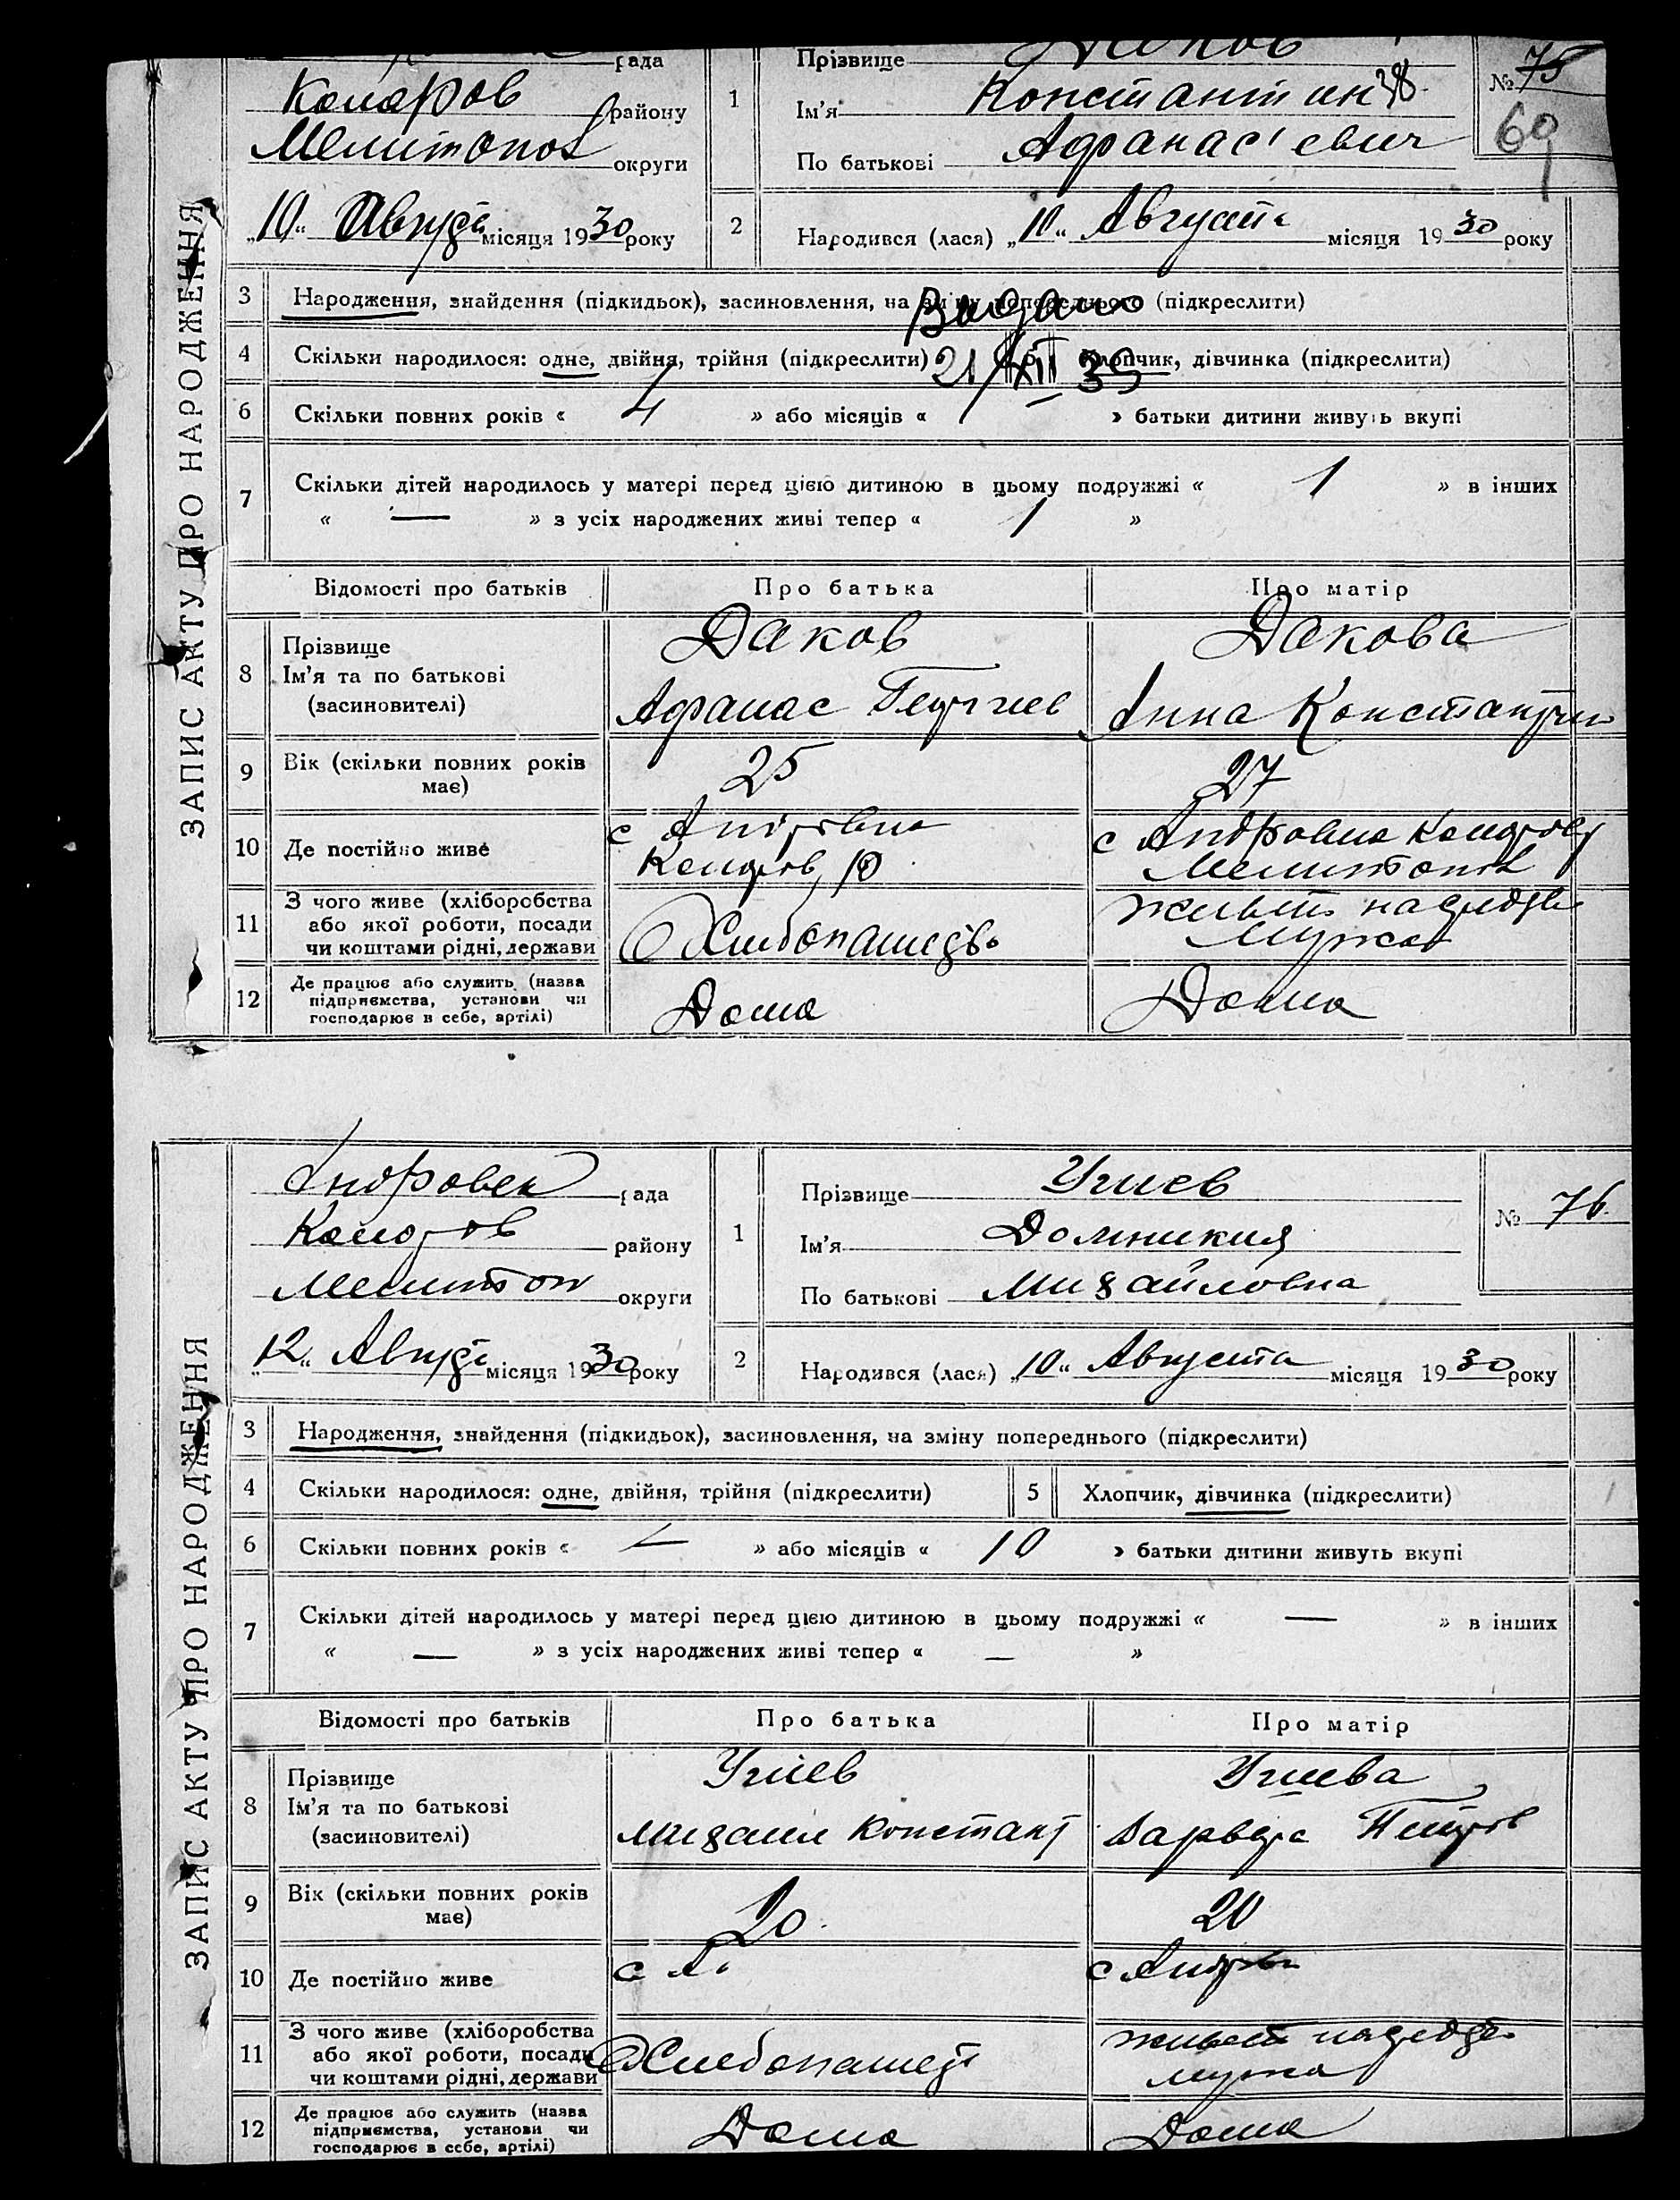 рада
Комаров району
Мелитопол округи
„10“ Август місяця 1930 року
1
Прізвище Даков
Ім'я Константин
По батькові Афанас'евич
№ 75
69
2 Народився (лася) „10“ Августа місяця 1930 року
ЗАПИС АКТУ ПРО НАРОДЖЕННЯ
3 Народження, знайдення (підкидьок), засиновлення, на зміну попереднього (підкреслити)
Видано
4 Скільки народилося: одне, двійня, трійня (підкреслити) 5 Хлопчик, дівчинка (підкреслити)
21/XII 39
6 Скільки повних років « 4 » або місяців « » батьки дитини живуть вкупі
7 Скільки дітей народилось у матері перед цією дитиною в цьому подружжі « 1 » в інших
« — » з усіх народжених живі тепер « 1 »
Відомості про батьків Про батька Про матір
8 Прізвище Даков Дакова
Ім'я та по батькові Афанас Георгиев Анна Константин
(засиновителі)
9 Вік (скільки повних років має) 25 27
10 Де постійно живе с Андровка с Андровка Комаров
Комаров, р Мелитопол
11 З чого живе (хліборобства
або якої роботи, посади
чи коштами рідні, держави
Хлебопашество
живет на средства
мужа
12 Де працює або служить (назва
підприємства, установи чи
господарює в себе, артілі)
Дома Дома
ЗАПИС АКТУ ПРО НАРОДЖЕННЯ
Андровск рада
Комаров району
Мелитоп округи
„12“ Август місяця 1930 року
1
Прізвище Узиев
Ім'я Домникия
По батькові Михайловна
№ 76
2 Народився (лася) „10“ Августа місяця 1930 року
3 Народження, знайдення (підкидьок), засиновлення, на зміну попереднього (підкреслити)
4 Скільки народилося: одне, двійня, трійня (підкреслити) 5 Хлопчик, дівчинка (підкреслити)
6 Скільки повних років « — » або місяців « 10 » батьки дитини живуть вкупі
7 Скільки дітей народилось у матері перед цією дитиною в цьому подружжі « — » в інших
« — » з усіх народжених живі тепер « — »
Відомості про батьків Про батька Про матір
8 Прізвище Узиев Узиева
Ім'я та по батькові Михаил Констант Варвара Петров
(засиновителі)
9 Вік (скільки повних років має) 20 20
10 Де постійно живе с А. с Андровка
11 З чого живе (хліборобства
або якої роботи, посади
чи коштами рідні, держави
Хлебопашест
живет на средства
мужа
12 Де працює або служить (назва
підприємства, установи чи
господарює в себе, артілі)
Дома Дома